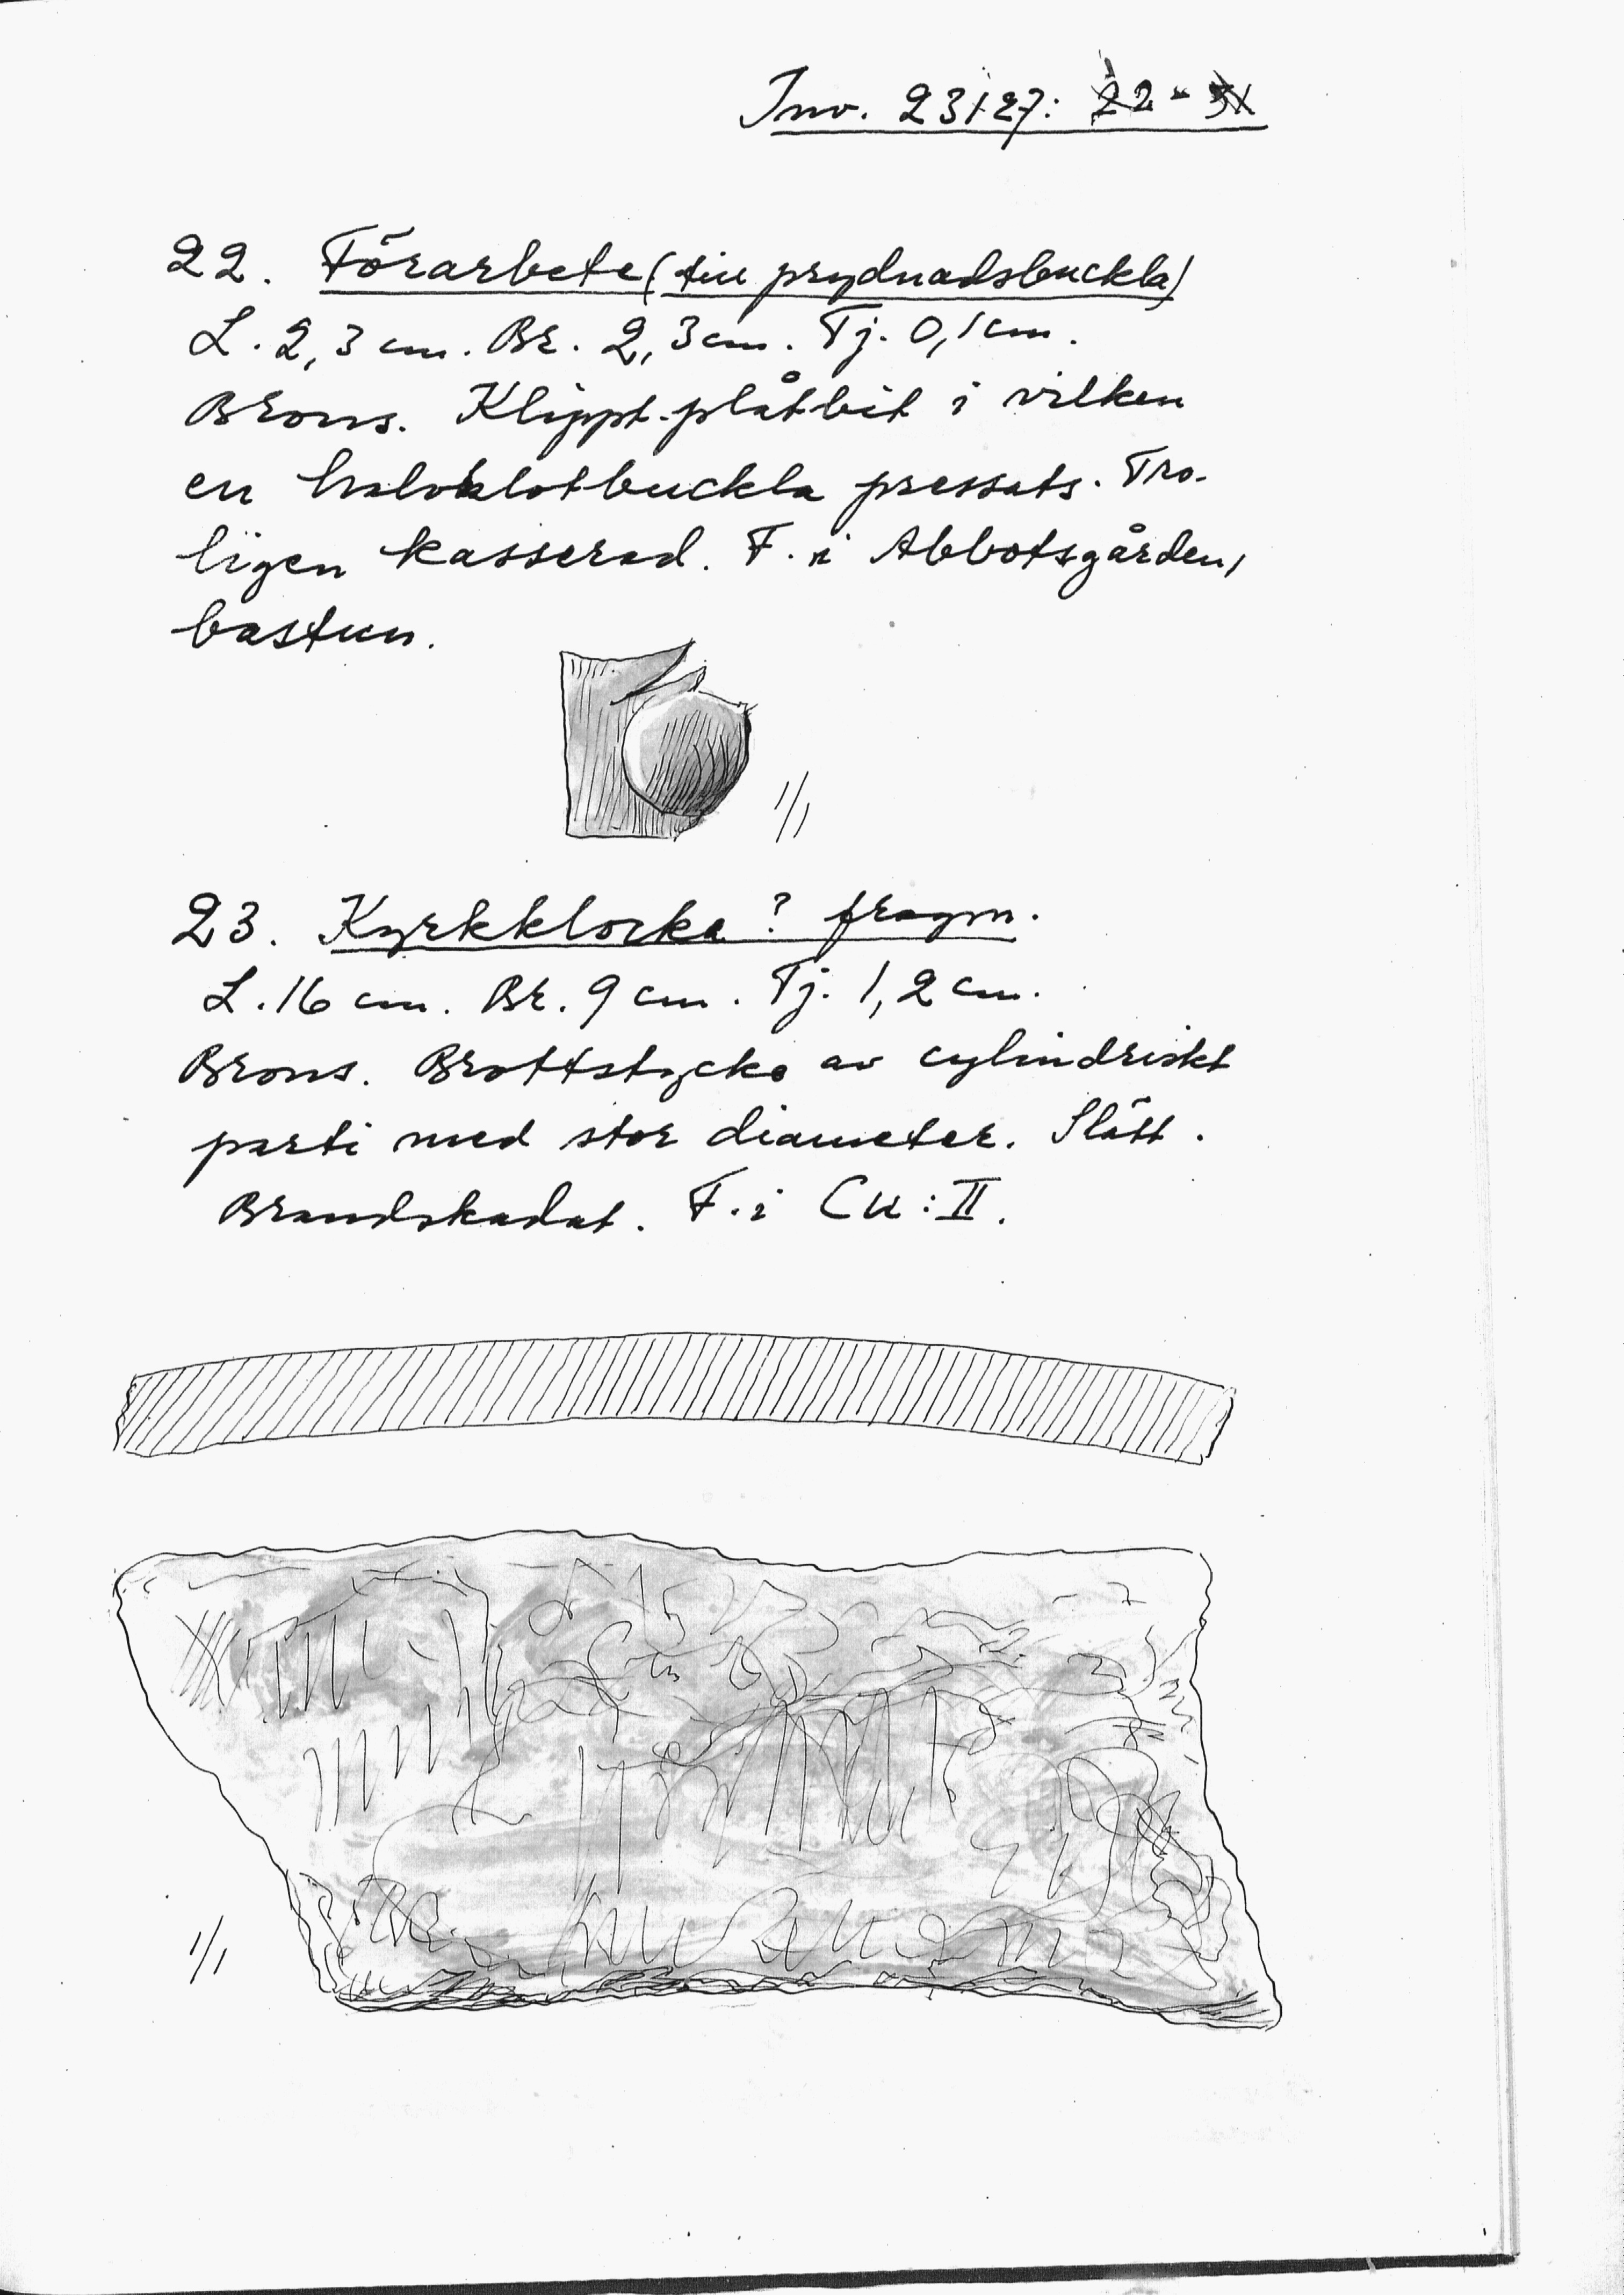 Inv. 23127: 22 -
22. Förarbete (till prydnadsbuckla)
L. 2,3 cm. Br. 2,3 cm. Tj. 0,1 cm.
Brons. Klippt plåtbit i vilken
en halvklotbuckla pressats. Tro-
ligen kasserad. F. i Abbotsgården,
bastun.
1/1
23. Kyrkklocka? fragm.
L. 16 cm. Br. 9 cm. Tj. 1,2 cm.
Brons. Brottstycke av cylindriskt
parti med stor diameter. Slätt.
Brandskadat. F. i CK: II.
1/1